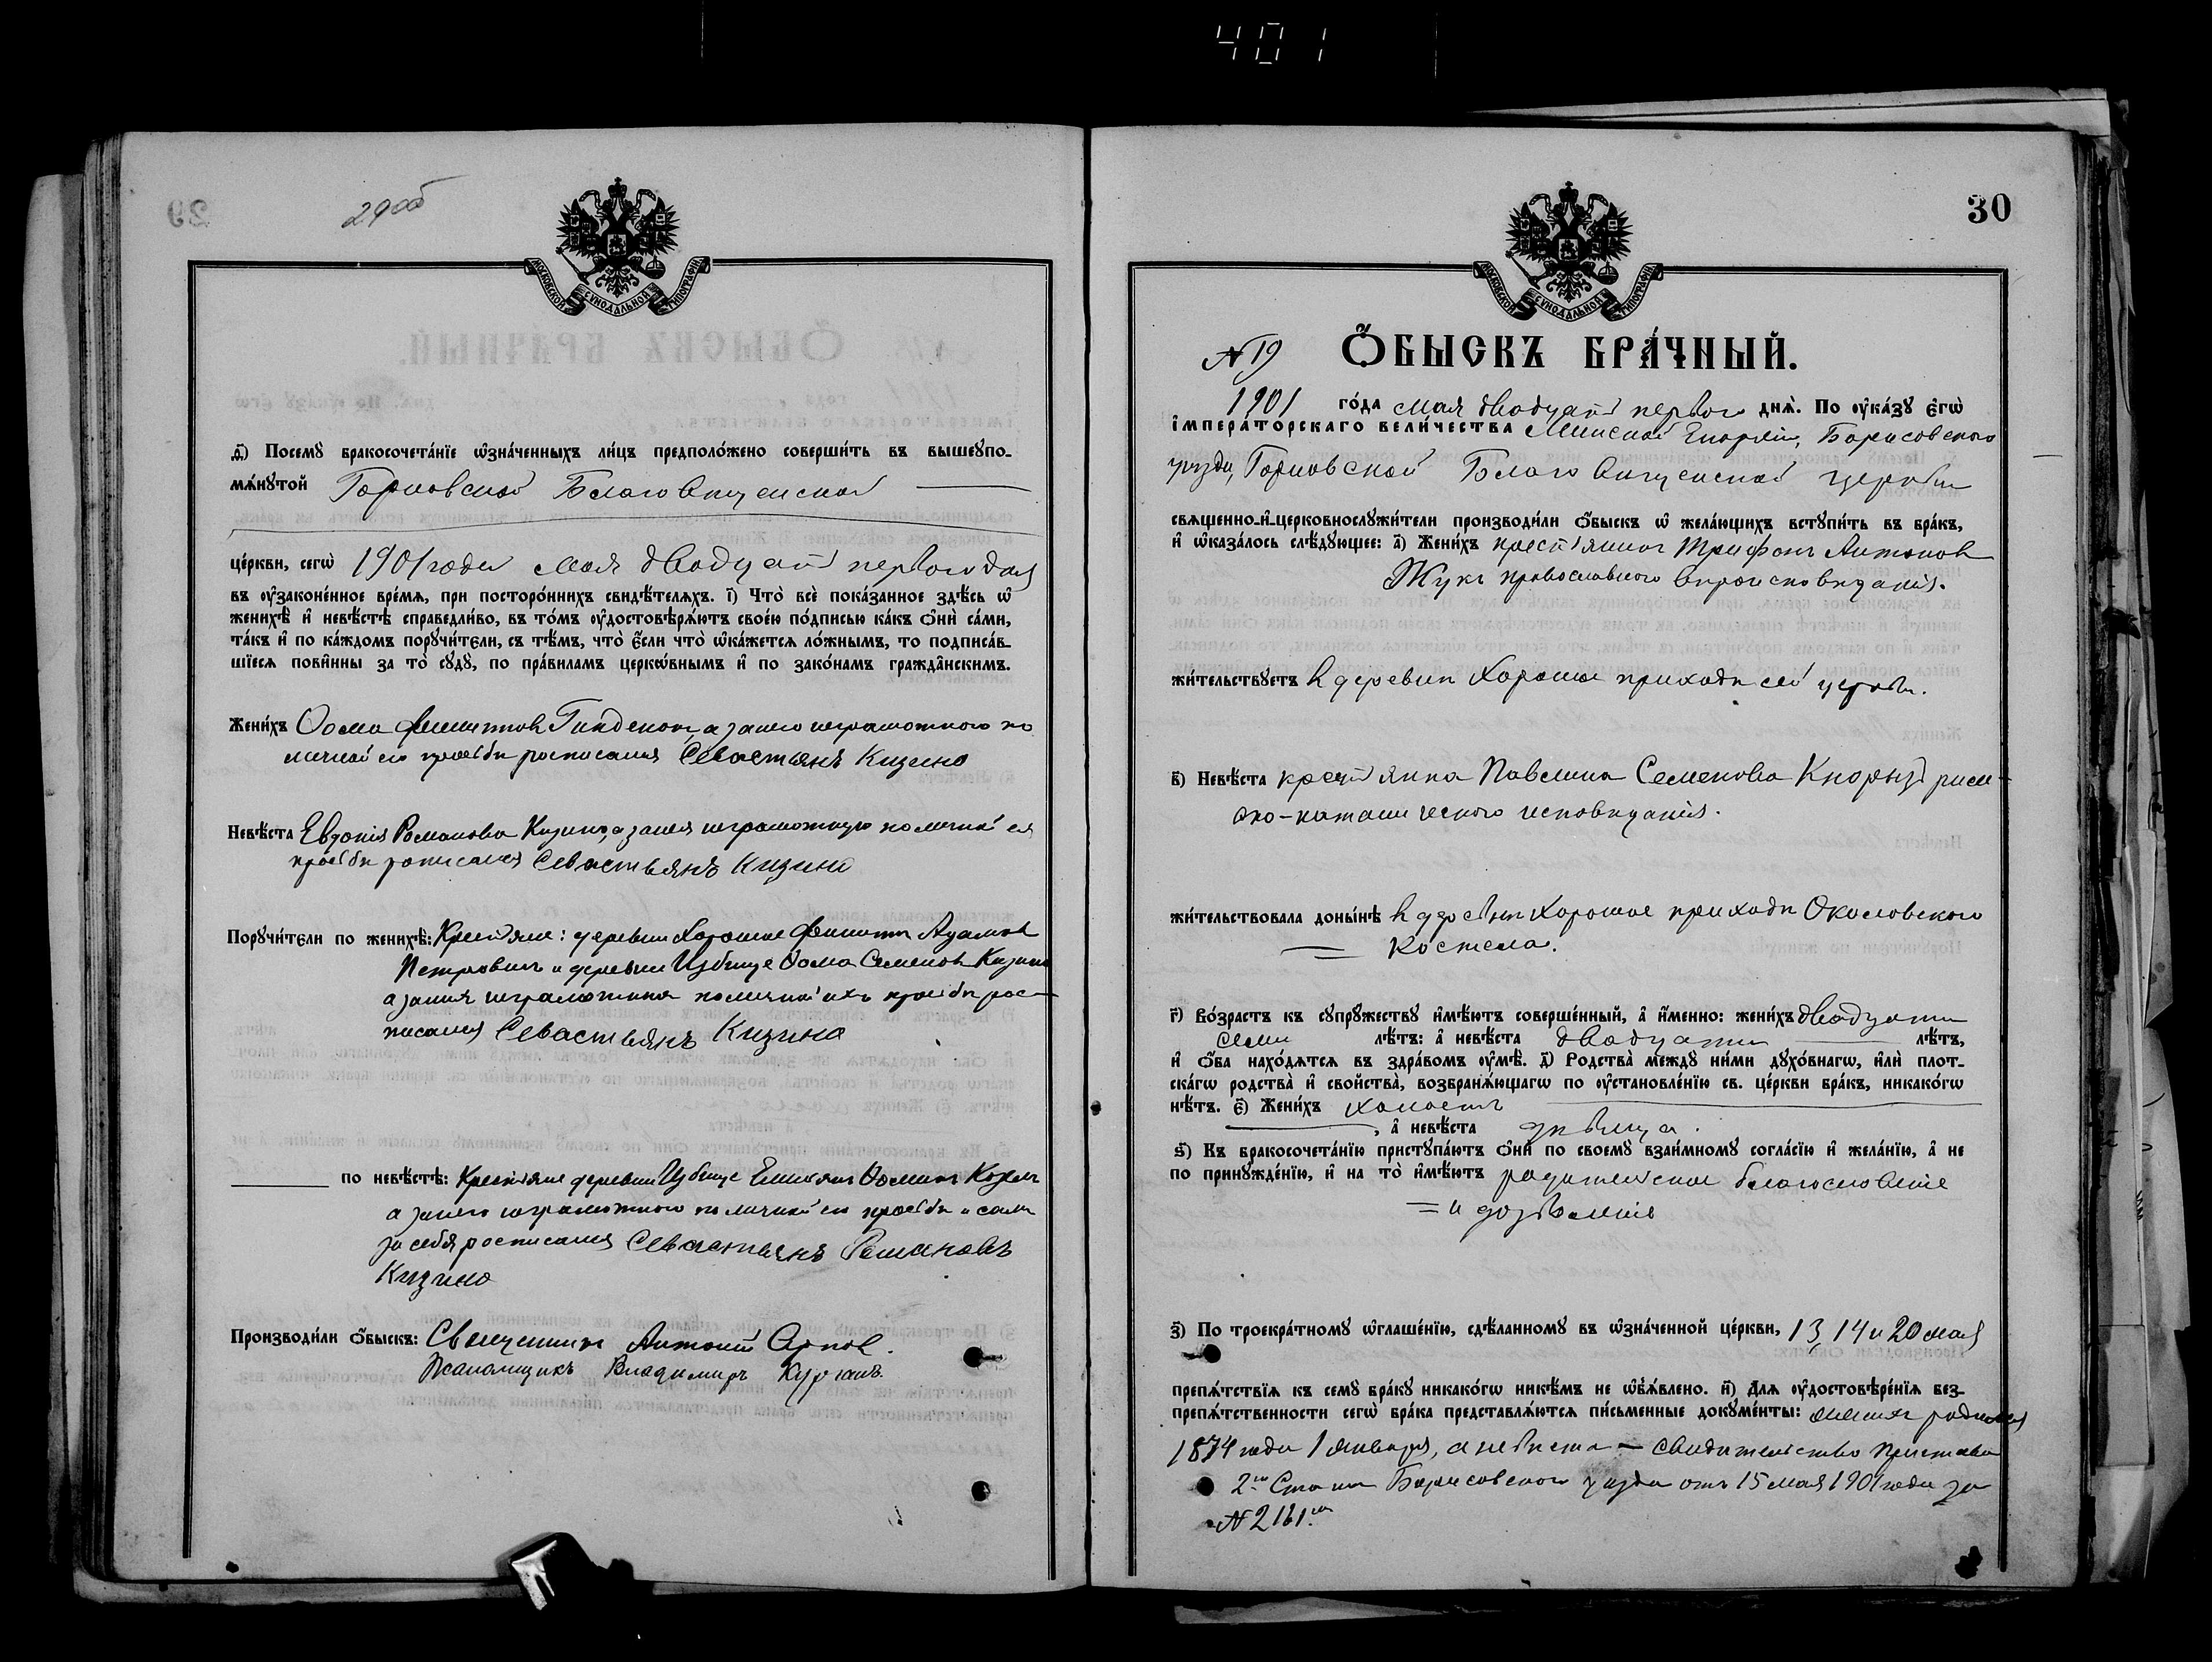 401
29 об
29
МОСКОВСКОЙ СУНОДАЛЬНОЙ ТИПОГРАФІИ
д҃і) Посемꙋ̀ бракосочета́нїе ѡ҆зна́ченныхъ ли́цъ предполо́жено соверши́ть въ вышеꙋпо-
мѧ́нꙋтой Горновской Благовѣщенской
це́ркви, сегѡ̀ 1901 года мая двадцать перваго дня
въ ᲂу҆зако́ненное вре́мѧ, при посторо́ннихъ свидѣ́телѧхъ. і҃) Что̀ всѐ пока́занное здѣ́сь ѡ҆
женихѣ̀ и҆ невѣ́стѣ справедли́во, въ то́мъ ᲂу҆достовѣрѧ́ютъ свое́ю по́дписью ка́къ ѻ҆нѝ са́ми,
та́къ и҆ по ка́ждомъ порꙋчи́тєли, съ тѣ́мъ, что̀ є҆́сли что̀ ѡ҆ка́жетсѧ ло́жнымъ, то подписа́в-
шїесѧ пови́нны за то̀ сꙋдꙋ̀, по пра́виламъ церкѡ́внымъ и҆ по зако́намъ гражда̂нскимъ.
Жени́хъ Ѳома Филиповъ Гинденокъ, а за него неграмотнаго по
личной его просьбѣ росписался Севастьянъ Кизино
Невѣ́ста Евдокія Романова Кизино, а за нея неграмотную по личной ея
просьбѣ росписался Севастьянъ Кизино
Порꙋчи́тєли по женихѣ̀: Крестьяне: деревни Хорошое Филипъ Адамовъ
Петровичъ и деревни Избище Ѳома Семеновъ Кизино
а за нихъ неграмотныхъ по личной ихъ просьбѣ рос-
писался Севастьянъ Кизино
по невѣ́стѣ: Крестьяне деревни Избище Ѳоминъ Козелъ
а за него неграмотнаго по личной его просьбѣ и самъ
за себя росписался Севастьянъ Романовъ
Кизино
Производи́ли ѻ҆́быскъ: Священникъ Антоній
Псаломщикъ Владимиръ
30
МОСКОВСКОЙ СУНОДАЛЬНОЙ ТИПОГРАФІИ
№ 19 Ѻ҆́БЫСКЪ БРА́ЧНЫЙ.
1901 го́да мая двадцать перваго днѧ̀. По ᲂу҆ка́зꙋ є҆гѡ̀
і҆мпера́торскаго вели́чества Минской Епархіи, Борисовскаго
уѣзда, Горновской Благовѣщенской церкви
свѧщенно-и҆-церковнослꙋжи́тели производи́ли ѻ҆́быскъ ѡ҆ жела́ющихъ встꙋпи́ть въ бра́къ,
и҆ ѡ҆каза́лось слѣ́дꙋющее: а҃) Жени́хъ крестьянинъ Трифонъ Антоновъ
Жукъ православнаго вѣроисповѣданія.
жи́тельствꙋетъ въ деревнѣ Хорошое прихода сей церкви.
в҃) Невѣ́ста крестьянка Павлина Семенова Кнорозъ рим-
ско-католическаго исповѣданія.
жи́тельствовала доны́нѣ въ деревнѣ Хорошое прихода Околовскаго
костела.
г҃) Во́зрастъ къ сꙋпрꙋ́жествꙋ и҆мѣ́ютъ соверше́нный, а҆ и҆́менно: жени́хъ двадцати
семи лѣ́тъ: а҆ невѣ́ста двадцати лѣ́тъ,
и҆ ѻ҆́ба нахо́дѧтсѧ въ здра́вомъ ᲂу҆мѣ̀. д҃) Родства̀ ме́ждꙋ ни́ми дꙋхо́внагѡ, и҆лѝ плот-
ска́гѡ родства̀ и҆ свойства̀, возбранѧ́ющагѡ по ᲂу҆становле́нїю св. це́ркви бра́къ, никако́гѡ
нѣ́тъ. є҃) Жени́хъ холостъ
, а҆ невѣ́ста дѣвица.
ѕ҃) Къ бракосочета́нїю пристꙋпа́ютъ ѻ҆нѝ по своемꙋ̀ взаи́мномꙋ согла́сїю и҆ жела́нїю, а҆ не
по принꙋжде́нїю, и҆ на то̀ и҆мѣ́ютъ родительское благословеніе
= и дозволеніе
з҃) По троекра́тномꙋ ѡ҆глаше́нїю, сдѣ́ланномꙋ въ ѡ҆зна́ченной це́ркви, 13, 14 и 20 мая
препѧ́тствїѧ къ семꙋ̀ бра́кꙋ никако́гѡ никѣ́мъ не ѡ҆б̾ѧ́влено. и҃) Длѧ ᲂу҆достовѣре́нїѧ без-
препѧ́тственности сегѡ̀ бра́ка представлѧ́ютсѧ пи́сьменные докꙋме́нты: женихъ родился
1874 года 1 января, а невѣста — свидѣтельство Пристава
2го Стана Борисовскаго уѣзда отъ 15 мая 1901 года за
№ 2161